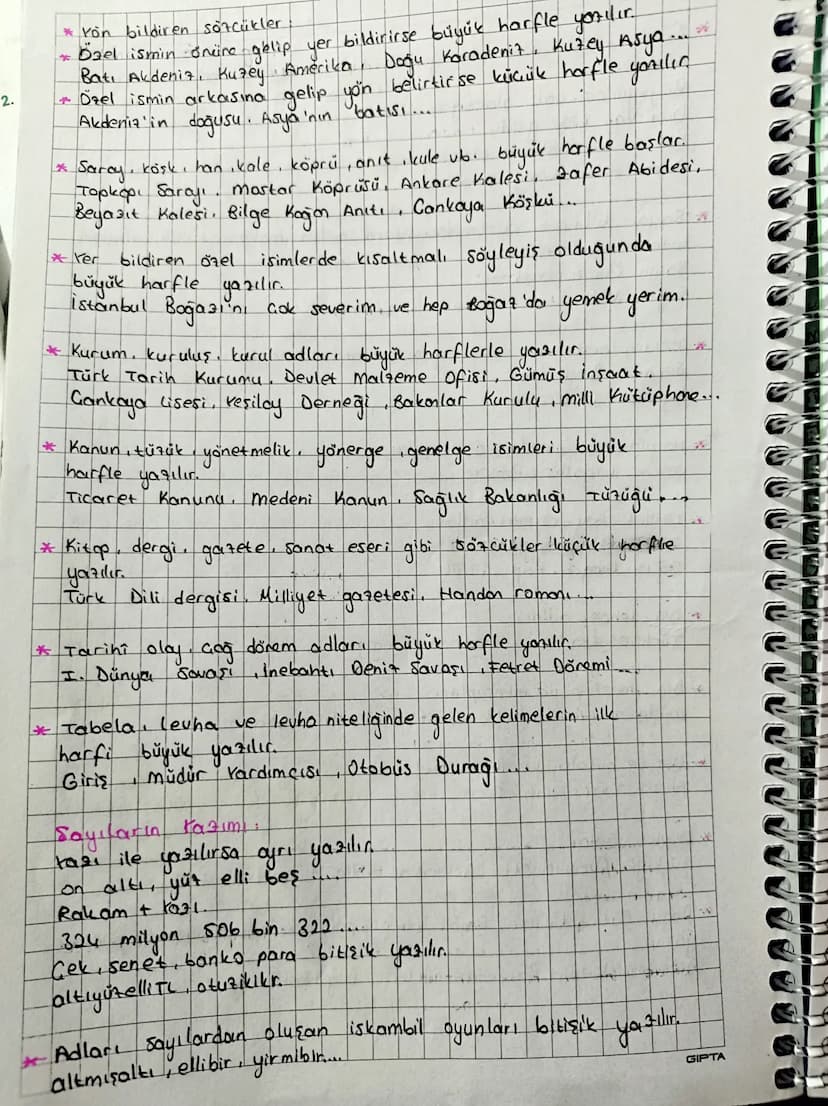 * Yön bildiren sözcükler:
* Özel ismin önüne gelip yer bildirirse büyük harfle yazılır.
Batı Akdeniz, Kuzey Amerika, Doğu Karadeniz, Kuzey Asya...
2.
* Özel ismin arkasına gelip yön belirtirse küçük harfle yazılır
Akdeniz'in doğusu, Asya'nın batısı...
* Saray, köşk, han, kale, köprü, anıt, kule vb. büyük harfle başlar.
Topkapı Sarayı, Mostar Köprüsü, Ankara Kalesi, Zafer Abidesi,
Beyazıt Kalesi, Bilge Kağan Anıtı, Çankaya Köşkü...
* Yer bildiren özel isimlerde kısaltmalı söyleyiş olduğunda
büyük harfle yazılır.
İstanbul Boğazı'nı çok severim ve hep Boğaz'da yemek yerim.
* Kurum, kuruluş, kurul adları büyük harflerle yazılır.
Türk Tarih Kurumu, Devlet Malzeme Ofisi, Gümüş İnşaat,
Çankaya Lisesi, Yeşilay Derneği, Bakanlar Kurulu, Milli Kütüphane...
* Kanun, tüzük, yönetmelik, yönerge, genelge isimleri büyük
harfle yazılır.
Ticaret Kanunu, Medeni Kanun, Sağlık Bakanlığı Tüzüğü...
* Kitap, dergi, gazete, sanat eseri gibi sözcükler küçük harfle
yazılır.
Türk Dili dergisi, Milliyet gazetesi, Handan romanı...
* Tarihî olay, çağ dönem adları büyük harfle yazılır.
I. Dünya Savaşı, İnebahtı Deniz Savaşı, Fetret Dönemi...
* Tabela, levha ve levha niteliğinde gelen kelimelerin ilk
harfi büyük yazılır.
Giriş, Müdür Yardımcısı, Otobüs Durağı...
Sayıların Yazımı:
Yazı ile yazılırsa ayrı yazılır
on altı, yüz elli beş....
Rakam + Yazı.
324 milyon 506 bin 322...
Çek, senet, banka para bitişik yazılır.
altıyüzelliTL, otuzikikr.
* Adları sayılardan oluşan iskambil oyunları bitişik yazılır.
altmışaltı, ellibir, yirmibir...
GIPTA